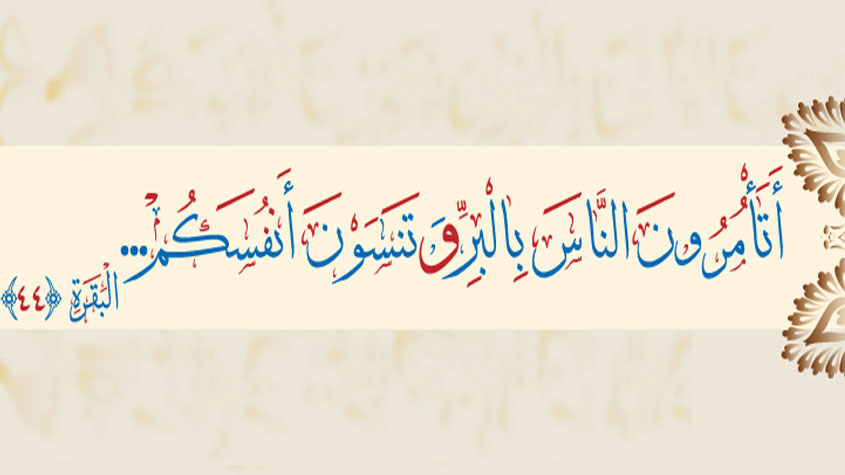 أَتَأْمُرُونَ النَّاسَ بِالْبِرِّ وَ تَنسَوْنَ أَنفُسَكُمْ... الْبَقَرَةِ ﴿٤٤﴾